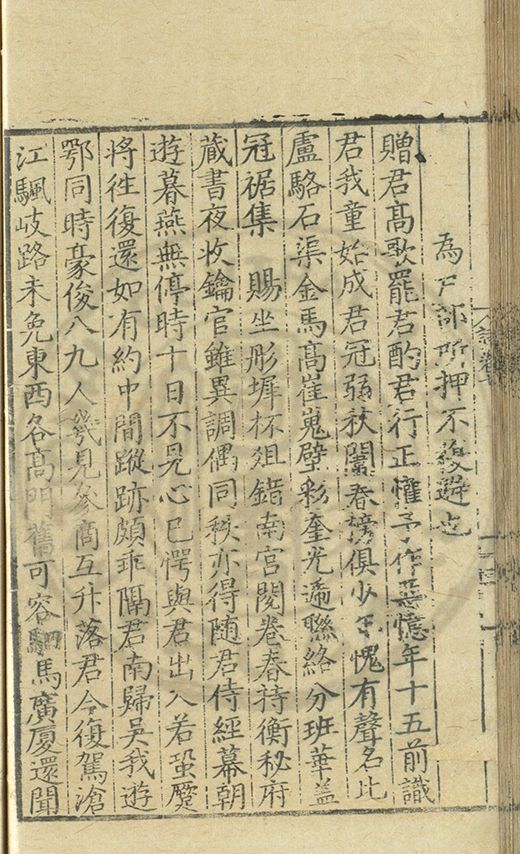 為戶部所押不復避也
贈君髙歌罷君酌君行正懽予作惡憶年十五前識
君我童始成君冠弱秋闈春榜俱少年愧有聲名比
盧駱石渠金馬髙崔嵬壁彩奎光遥聯絡分班華盖
冠裾集　賜坐彤墀杯俎錯南宮閱卷春持衡秘府
蔵書夜收鑰官雖異調偶同秩亦得随君侍經幕朝
遊暮燕無停時十日不見心已愕與君出入若蛩蹷
将徃復還如有約中間蹤跡頗乖隔君南歸吳我遊
鄂同時豪俊八九人幾見參商互升落君今復駕滄
江颿岐路未免東西各髙門舊可容駟馬廣厦還聞